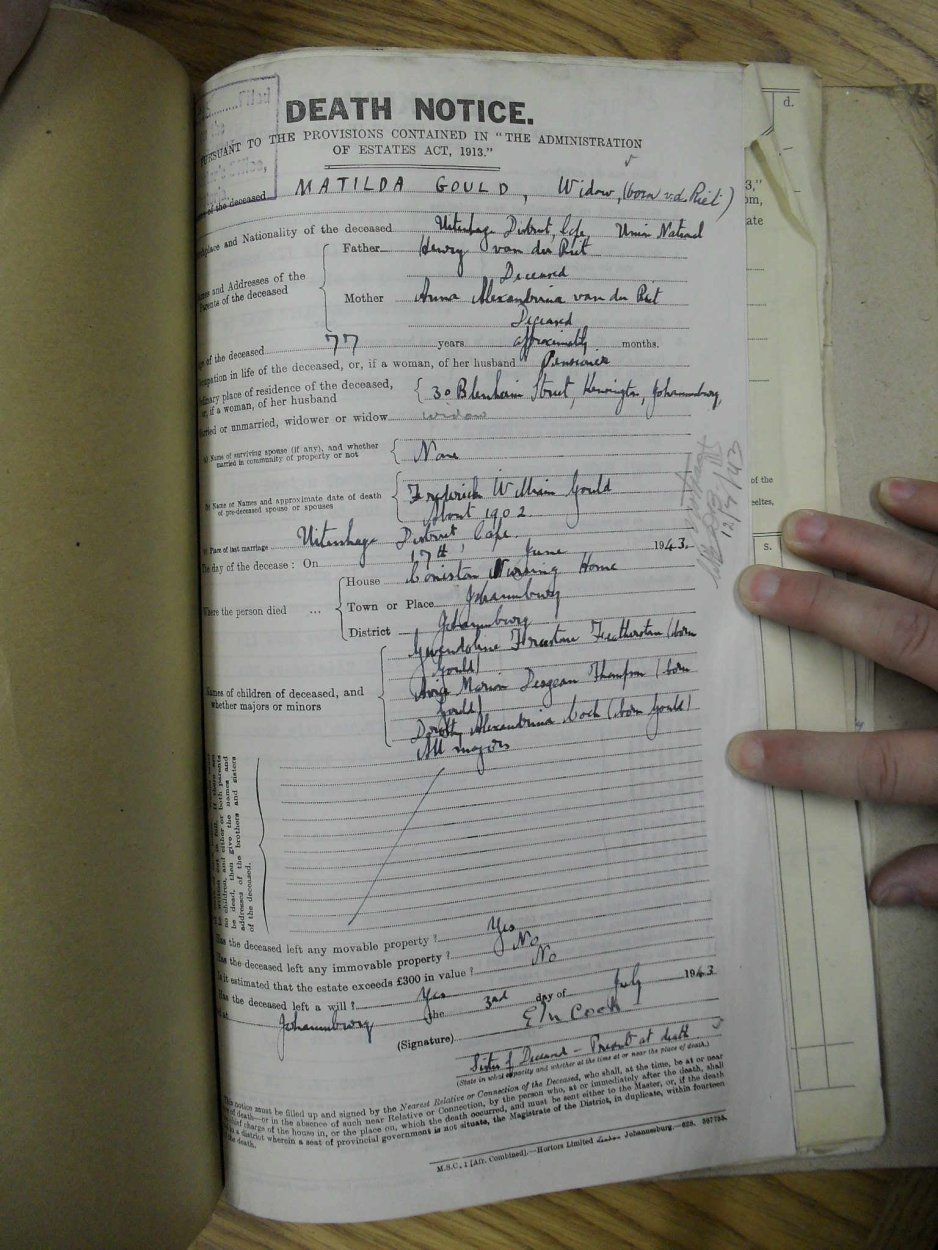 DEATH NOTICE.
PURSUANT TO THE PROVISIONS CONTAINED IN "THE ADMINISTRATION
OF ESTATES ACT, 1913."
of the deceased MATILDA GOULD, Widow, (born v.d. Riet)
place and Nationality of the deceased Uitenhage District, Cape, Union National
Names and Addresses of the
Parents of the deceased
Father Henry van der Riet
Deceased
Mother Anna Alexandrina van der Riet
Deceased
of the deceased 77 years approximately months.
Occupation in life of the deceased, or, if a woman, of her husband Pensioner
Ordinary place of residence of the deceased,
or, if a woman, of her husband
30 Blenheim Street, Kensington, Johannesburg,
Married or unmarried, widower or widow widow
Name of surviving spouse (if any), and whether
married in community of property or not
None
(b) Name or Names and approximate date of death
of pre-deceased spouse or spouses
Frederick William Gould
About 1902.
(c) Place of last marriage Uitenhage District, Cape.
The day of the decease: On 17th, June 1943.
Where the person died ...
House Coniston Nursing Home
Town or Place Johannesburg
District Johannesburg
Names of children of deceased, and
whether majors or minors
Gwendoline Featherston (born
Gould)
Marion Thompson (born
Gould)
Dorothy Alexandrina Cock (born Gould)
All majors
no children, and either or both parents
be dead, then give the names and
addresses of the brothers and sisters
of the deceased.
Has the deceased left any movable property? Yes
Has the deceased left any immovable property? No
Is it estimated that the estate exceeds £300 in value? No
Has the deceased left a will? Yes
at Johannesburg the 3rd day of July 1943
(Signature) Cock
Sister of Deceased - Present at death
(State in what capacity and whether at the time at or near the place of death.)
This notice must be filled up and signed by the Nearest Relative or Connection of the Deceased, who shall, at the time, be at or near
of death—or in the absence of such near Relative or Connection, by the person who, at or immediately after the death, shall
chief charge of the house in, or the place on, which the death occurred, and must be sent either to the Master, or, if the death
in a district wherein a seat of provincial government is not situate, the Magistrate of the District, in duplicate, within fourteen
the death.
M.S.C. 1 [Afr. Combined].—Hortors Limited Johannesburg.—628. 397754.
12/7/43
d.
3,"
om,
ate
of the
s.